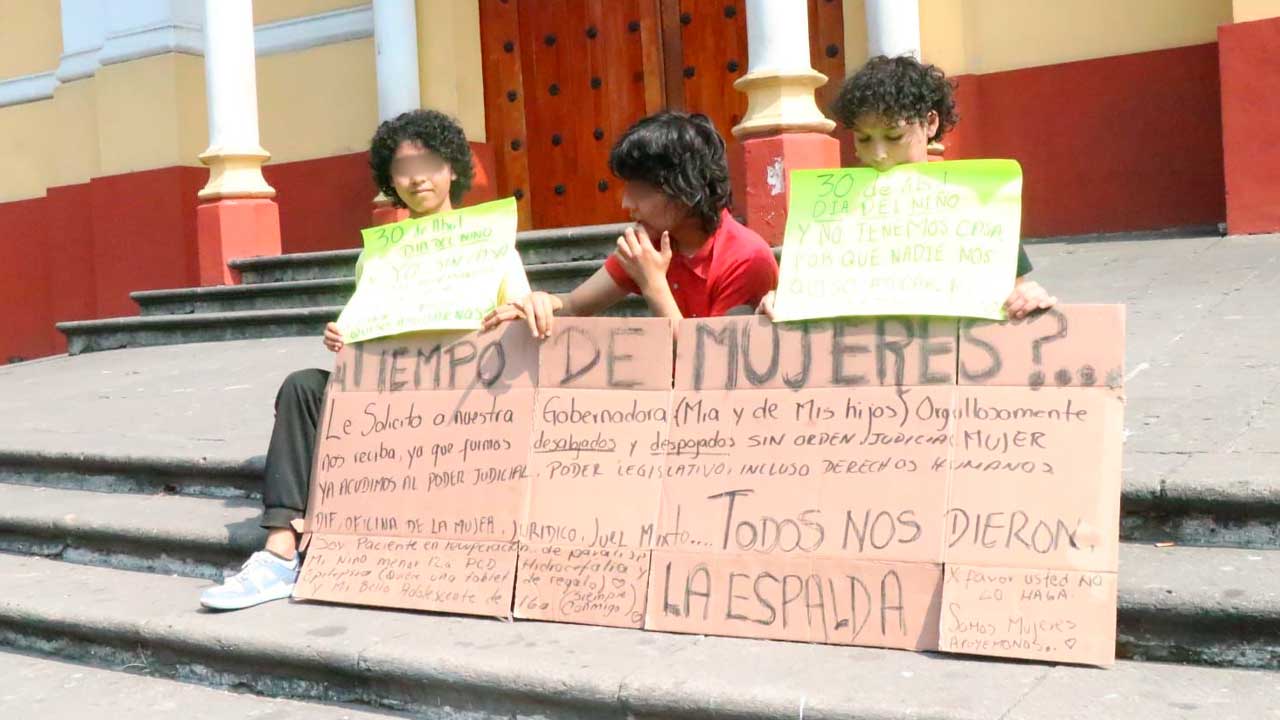 30 de Abril
DIA DEL NIÑO
30 de Abril
DIA DEL NIÑO
Y NO TENEMOS CASA
POR QUE NADIE NOS
QUISO
TIEMPO DE MUJERES?...
Le Solicito a nuestra Gobernadora (Mia y de Mis hijos) Orgullosamente
nos reciba, ya que fuimos desalojados y despojados SIN ORDEN JUDICIAL MUJER
YA ACUDIMOS AL PODER JUDICIAL, PODER LEGISLATIVO, INCLUSO DERECHOS HUMANOS
DIF, OFICINA DE LA MUJER, JURIDICO, Juel Mixto.... TODOS NOS DIERON
LA ESPALDA
Soy Paciente en recuperación de paralisis
Mi Niño menor 12a PCD Hidrocefalia y
Epilepsia (Quiere una tablet de regalo) ♡
y Mi Bello Adolescente de 16a (siempre conmigo)
X favor usted NO
LO HAGA.
Somos Mujeres
APOYEMONOS.. ♡